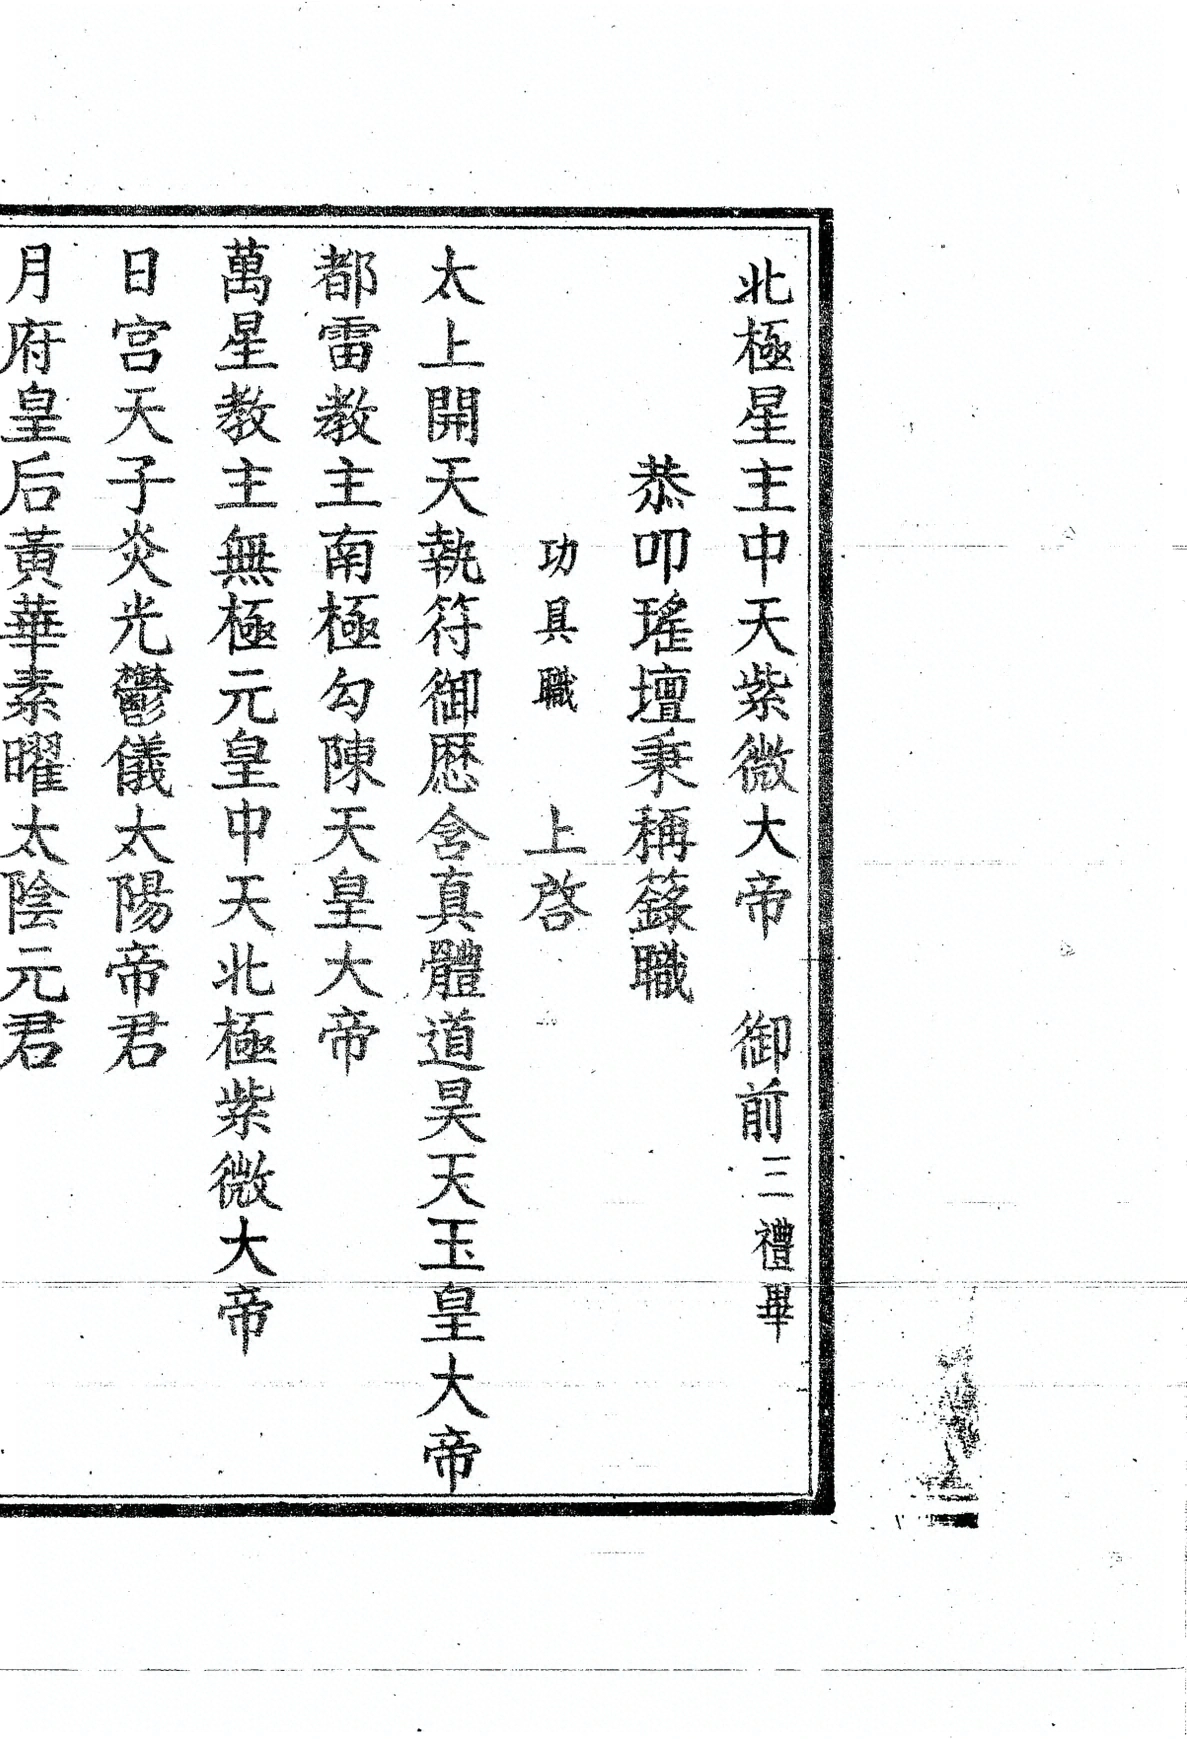 北極星主中天紫微大帝　御前三禮畢
恭叩瑤壇秉稱籙職
功具職　上啓
太上開天執符御歷含真體道昊天玉皇大帝
都雷教主南極勾陳天皇大帝
萬星教主無極元皇中天北極紫微大帝
日宮天子炎光鬱儀太陽帝君
月府皇后黃華素曜太陰元君